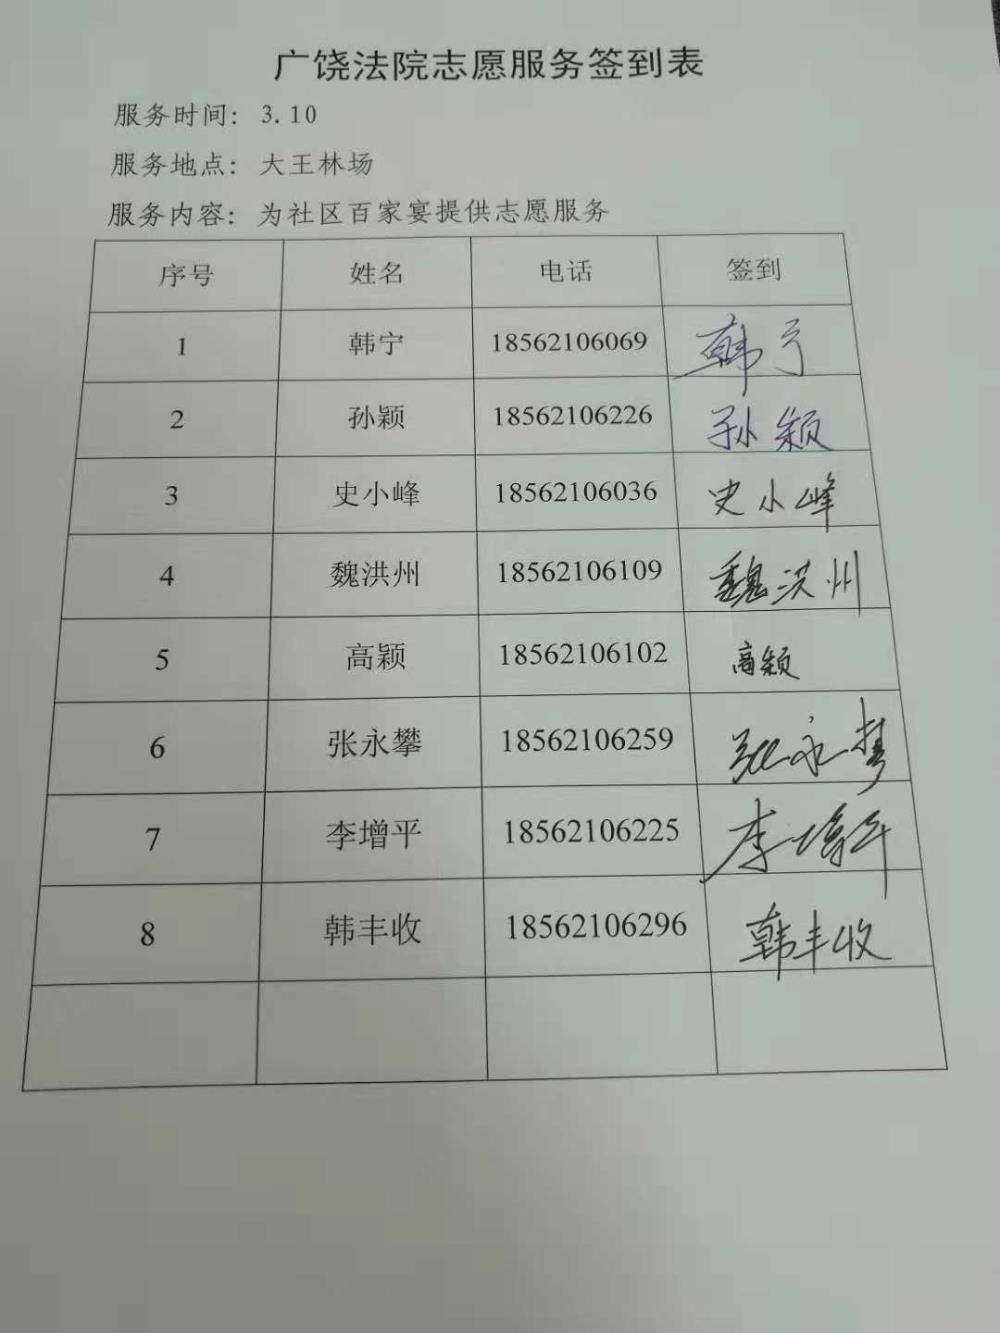 广饶法院志愿服务签到表
服务时间：3.10
服务地点：大王林场
服务内容：为社区百家宴提供志愿服务
序号 姓名 电话 签到
1 韩宁 18562106069 韩宁
2 孙颖 18562106226 孙颖
3 史小峰 18562106036 史小峰
4 魏洪州 18562106109 魏洪州
5 高颖 18562106102 高颖
6 张永攀 18562106259 张永攀
7 李增平 18562106225 李增平
8 韩丰收 18562106296 韩丰收